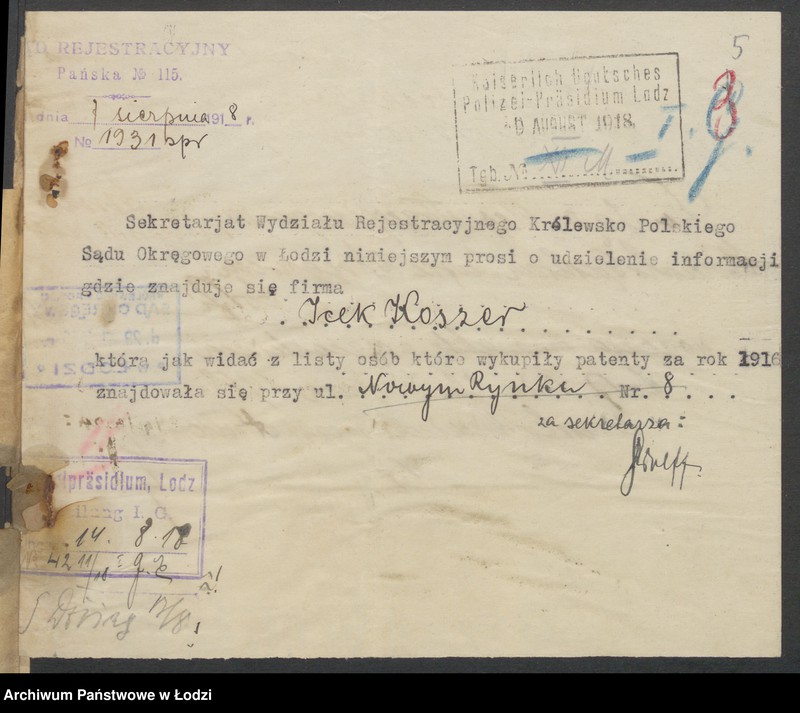 REJESTRACYJNY
Pańska № 115.
dnia 1 sierpnia 1918 r.
№ 1931 spr
5
3
Kaiserlich Deutsches
Polizei-Präsidium Lodz
AUGUST 1918
Tgb. №
Sekretarjat Wydziału Rejestracyjnego Królewsko Polskiego
Sądu Okręgowego w Łodzi niniejszym prosi o udzielenie informacji
gdzie znajduje się firma
Icek Koszer
która jak widać z listy osób które wykupiły patenty za rok 1916
znajdowała się przy ul. Nowym Rynku Nr. 8
za sekretarza:
präsidium, Lodz
14. 8. 18
Archiwum Państwowe w Łodzi